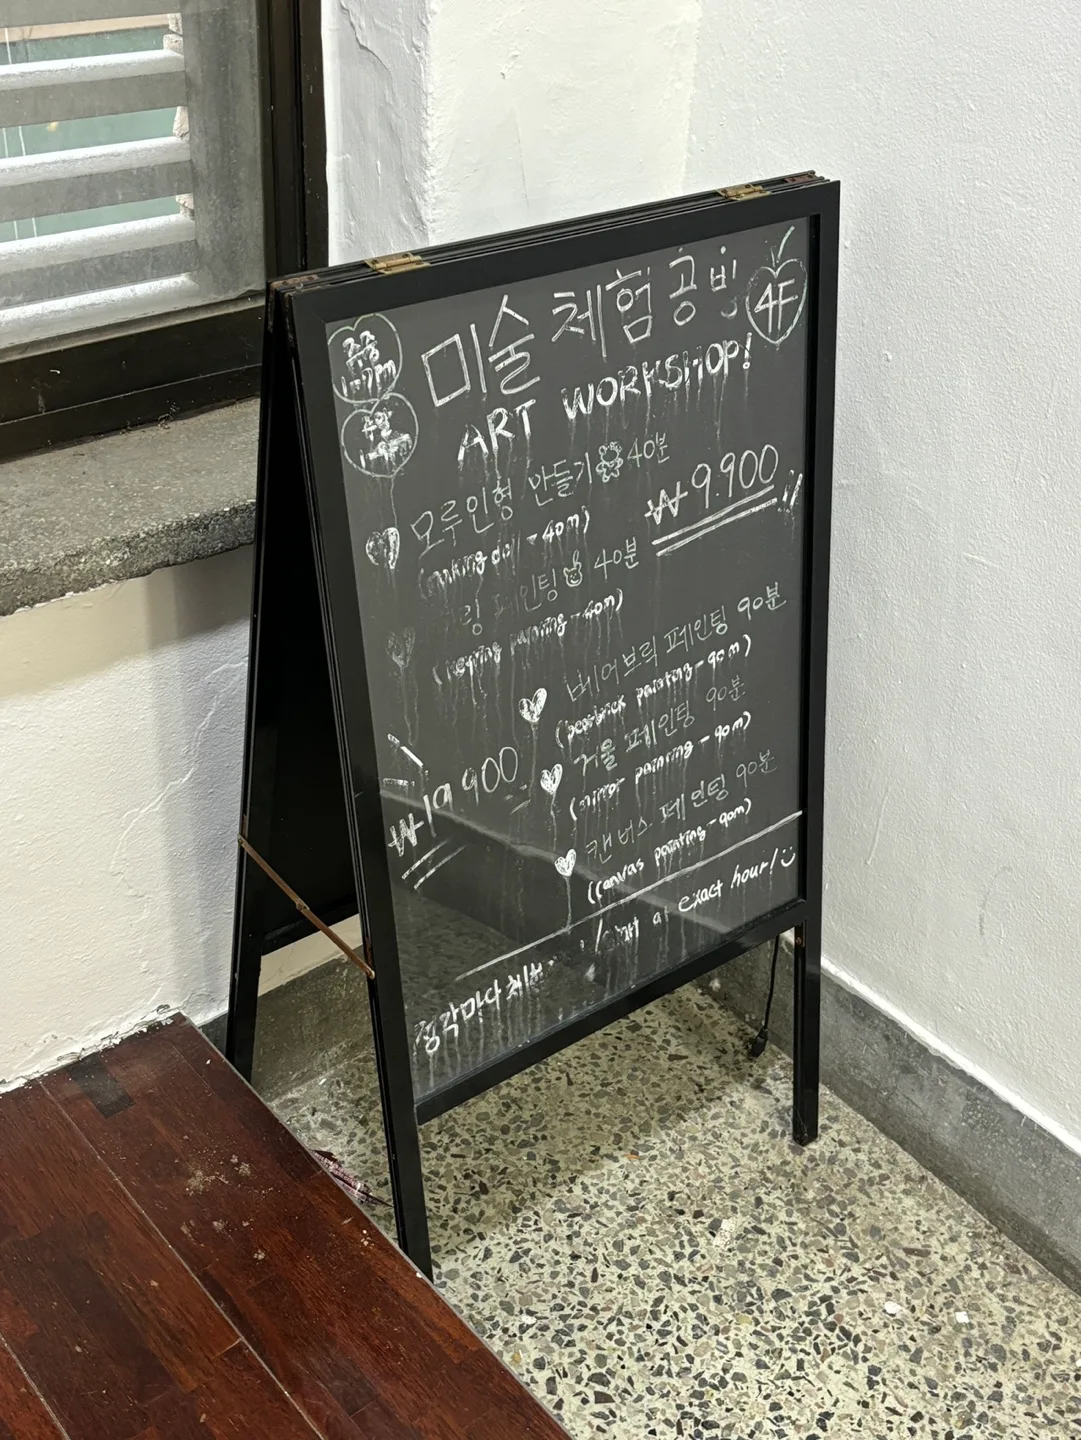 미술 체험 공방
4F
주중
1-7pm
주말
ART WORKSHOP!
모루인형 만들기 40분
(making doll - 40m)
₩9.900
링 페인팅 40분
(keyring painting - 40m)
베어브릭 페인팅 90분
(bearbrick painting - 90m)
거울 페인팅 90분
(mirror painting - 90m)
₩19.900
캔버스 페인팅 90분
(canvas painting - 90m)
정각마다 체험
/start at exact hour!